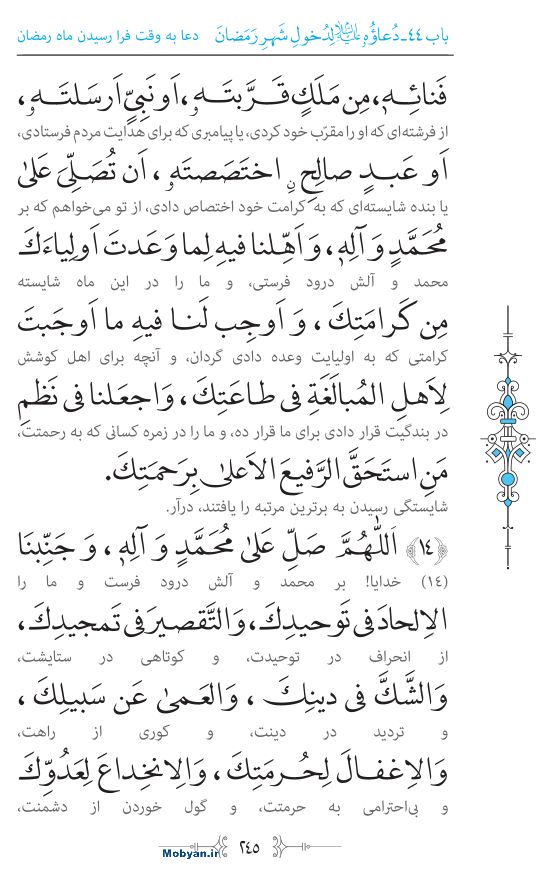 باب ٤٤-دُعاؤُهُ عليه‌السلام لِدُخولِ شَهرِ رَمَضانَ دعا به وقت فرا رسیدن ماه رمضان
فَنائِهِ، مِن مَلَكٍ قَرَّبتَهُ، اَو نَبِيٍّ اَرسَلتَهُ،
از فرشته‌ای که او را مقرّب خود کردی، یا پیامبری که برای هدایت مردم فرستادی،
اَو عَبدٍ صالِحٍ نِ اختَصَصتَهُ، اَن تُصَلِّيَ عَلىٰ
یا بنده شایسته‌ای که به کرامت خود اختصاص دادی، از تو می‌خواهم که بر
مُحَمَّدٍ وَ آلِهِ، وَ اَهِّلنا فيهِ لِما وَعَدتَ اَولِياءَكَ
محمد و آلش درود فرستی، و ما را در این ماه شایسته
مِن كَرامَتِكَ، وَ اَوجِب لَنا فيهِ ما اَوجَبتَ
کرامتی که به اولیایت وعده دادی گردان، و آنچه برای اهل کوشش
لِاَهلِ المُبالَغَةِ في طاعَتِكَ، وَاجعَلنا في نَظمِ
در بندگیت قرار دادی برای ما قرار ده، و ما را در زمره کسانی که به رحمتت،
مَنِ استَحَقَّ الرَّفيعَ الاَعلىٰ بِرَحمَتِكَ.
شایستگی رسیدن به برترین مرتبه را یافتند، درآر.
﴿١٤﴾ اَللّٰهُمَّ صَلِّ عَلىٰ مُحَمَّدٍ وَ آلِهِ، وَ جَنِّبنَا
(١٤) خدایا! بر محمد و آلش درود فرست و ما را
الاِلحادَ في تَوحيدِكَ، وَالتَّقصيرَ في تَمجيدِكَ،
از انحراف در توحیدت، و کوتاهی در ستایشت،
وَالشَّكَّ في دينِكَ، وَالعَمىٰ عَن سَبيلِكَ،
و تردید در دینت، و کوری از راهت،
وَالاِغفالَ لِحُرمَتِكَ، وَالاِنخِداعَ لِعَدُوِّكَ
و بی‌احترامی به حرمتت، و گول خوردن از دشمنت،
٢٤٥
Mobyan.ir